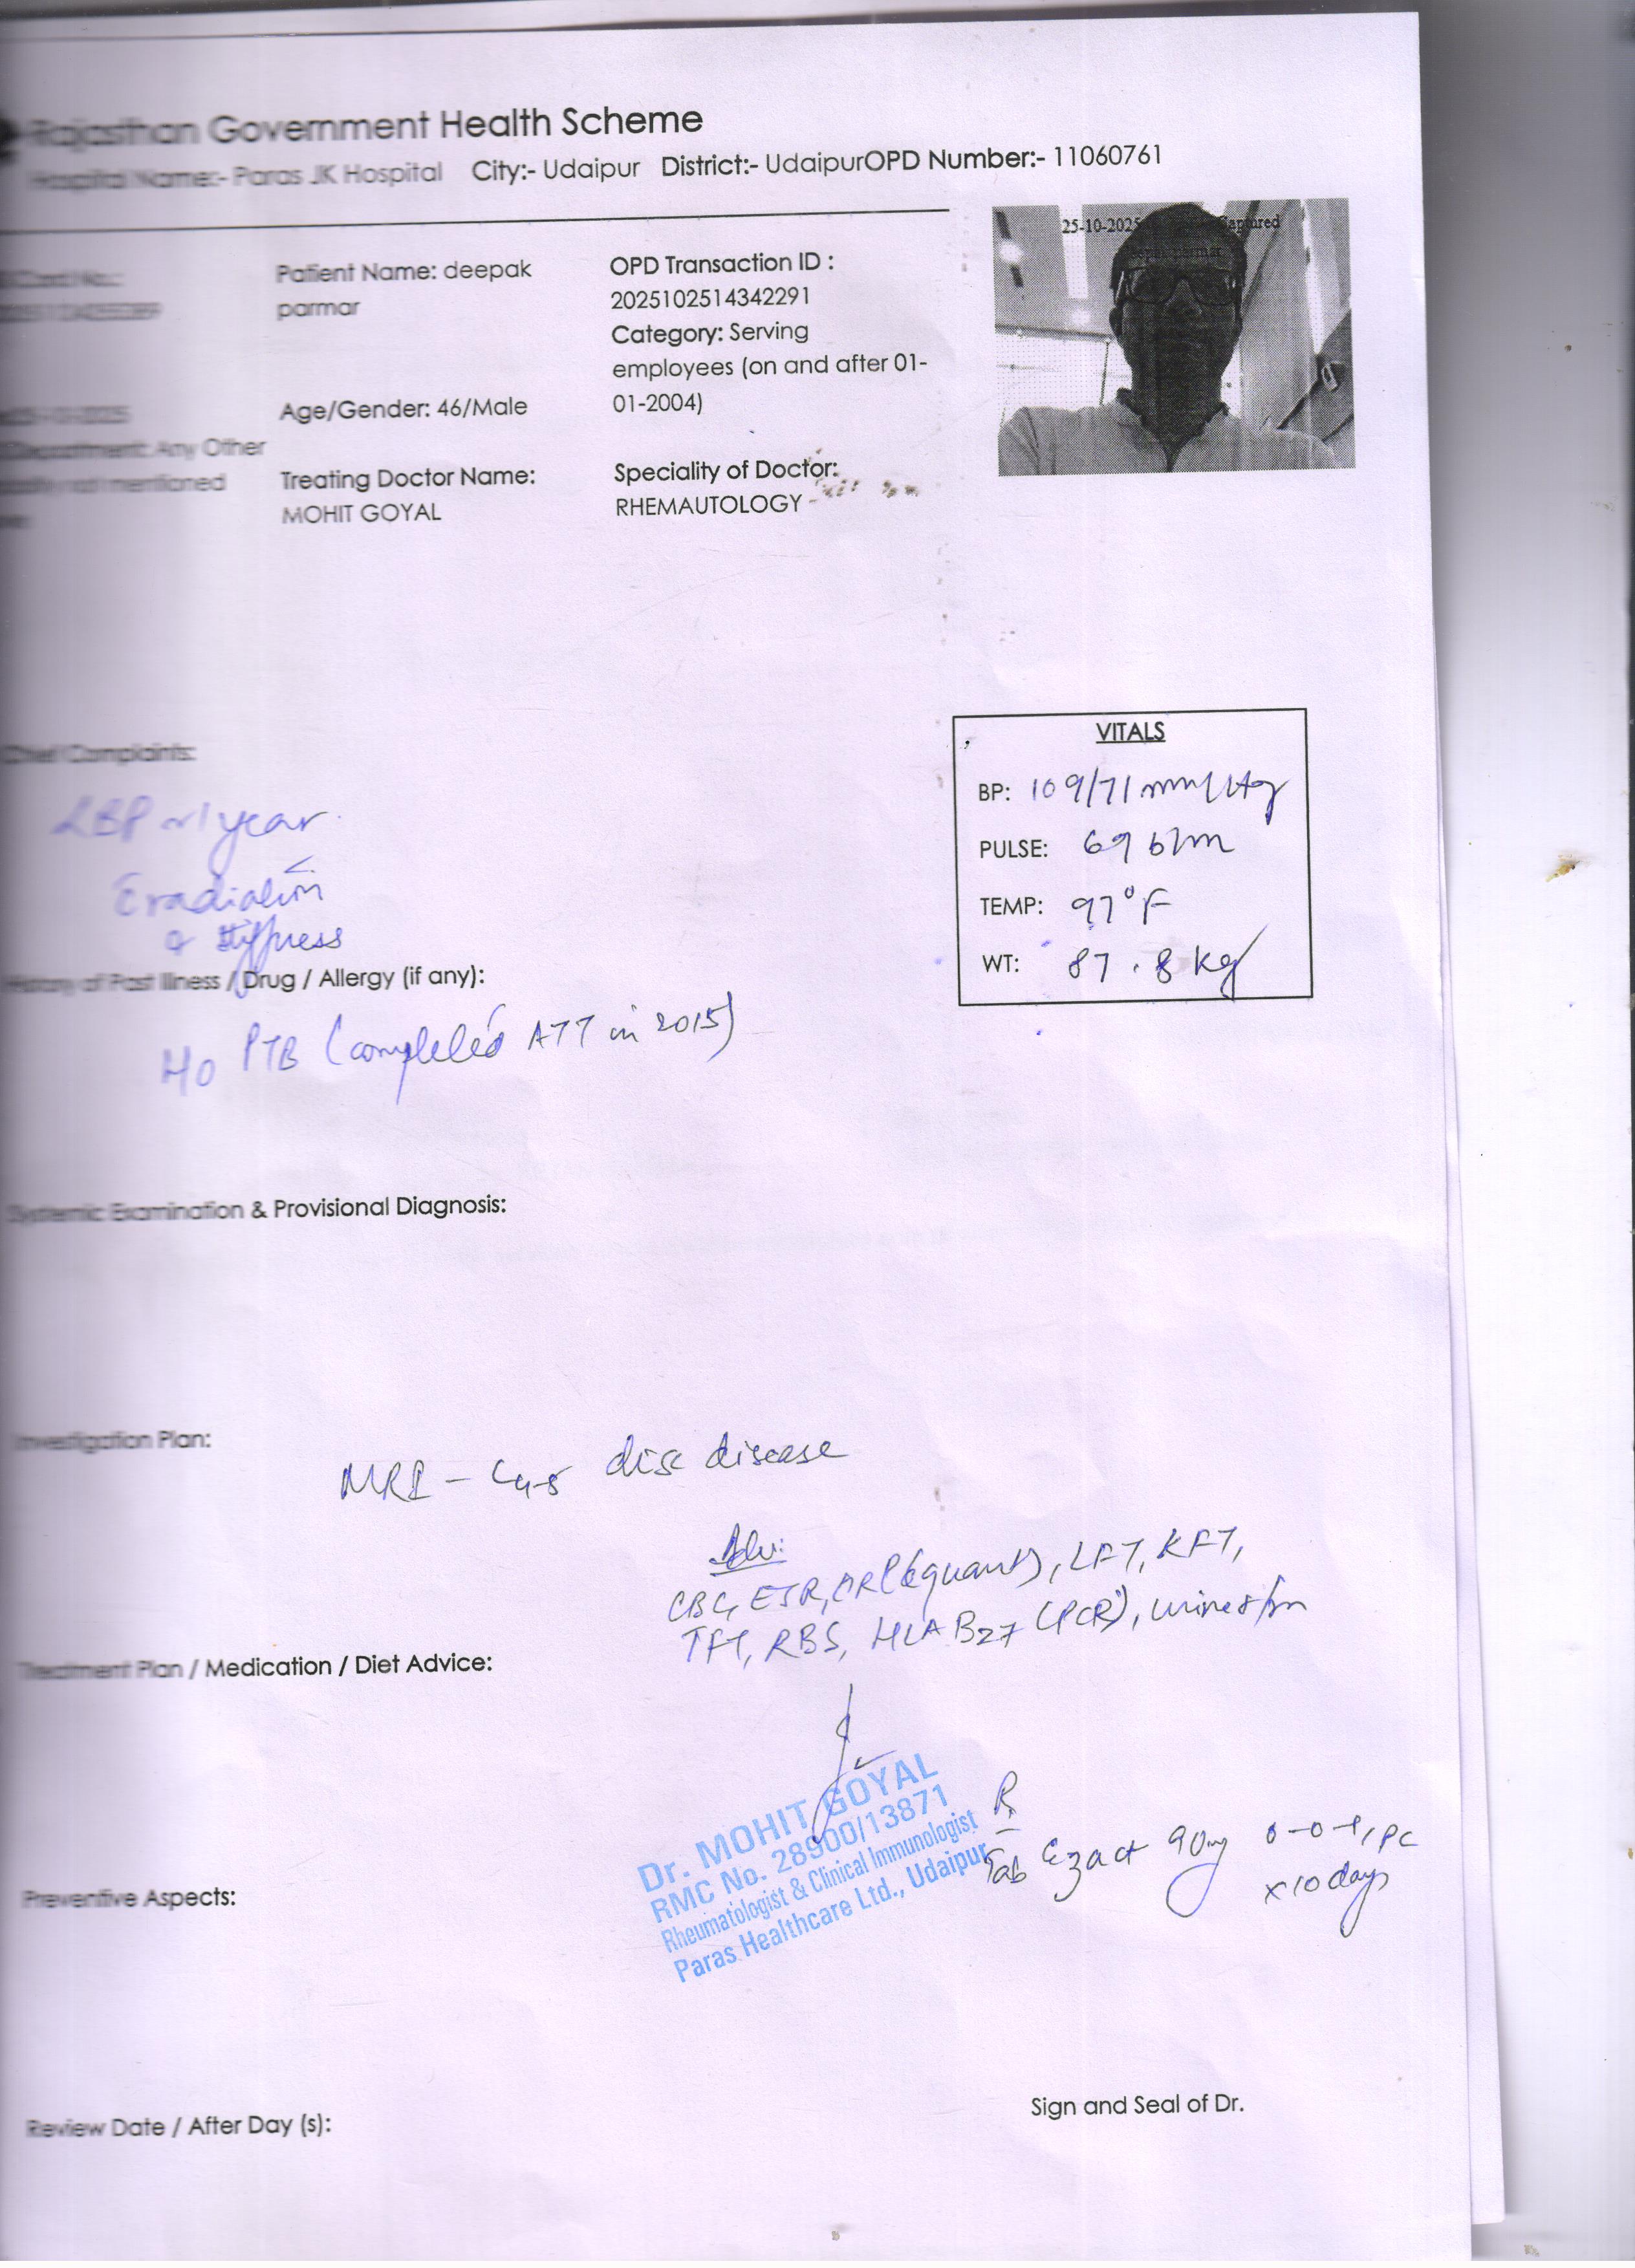 Rajasthan Government Health Scheme
Hospital Name:- Paras JK Hospital City:- Udaipur District:- UdaipurOPD Number:- 11060761
25-10-2025 Captured
deepak parmar
Card No.:
Patient Name: deepak
parmar
OPD Transaction ID :
2025102514342291
Category: Serving
employees (on and after 01-
01-2004)
Age/Gender: 46/Male
Department: Any Other
not mentioned
Treating Doctor Name:
MOHIT GOYAL
Speciality of Doctor:
RHEMAUTOLOGY
VITALS
BP: 109/71 mmHg
PULSE: 69 b/m
TEMP: 97°F
WT: 87.8 kg
Chief Complaints:
LBP 1 year
radiation
stiffness
History of Past Illness / Drug / Allergy (if any):
H/o PTB (completed ATT in 2015)
Systemic Examination & Provisional Diagnosis:
Investigation Plan:
MRI - L4-5 disc disease
Adv:
CBC, ESR, CRP (quant), LFT, KFT,
TFT, RBS, HLA B27 (PCR), urine r/m
Treatment Plan / Medication / Diet Advice:
Dr. MOHIT GOYAL
RMC No. 28900/13871
Rheumatologist & Clinical Immunologist
Paras Healthcare Ltd., Udaipur
Rx
Tab Ezact 90mg 0-0-1, PC
x10 days
Preventive Aspects:
Sign and Seal of Dr.
Review Date / After Day (s):